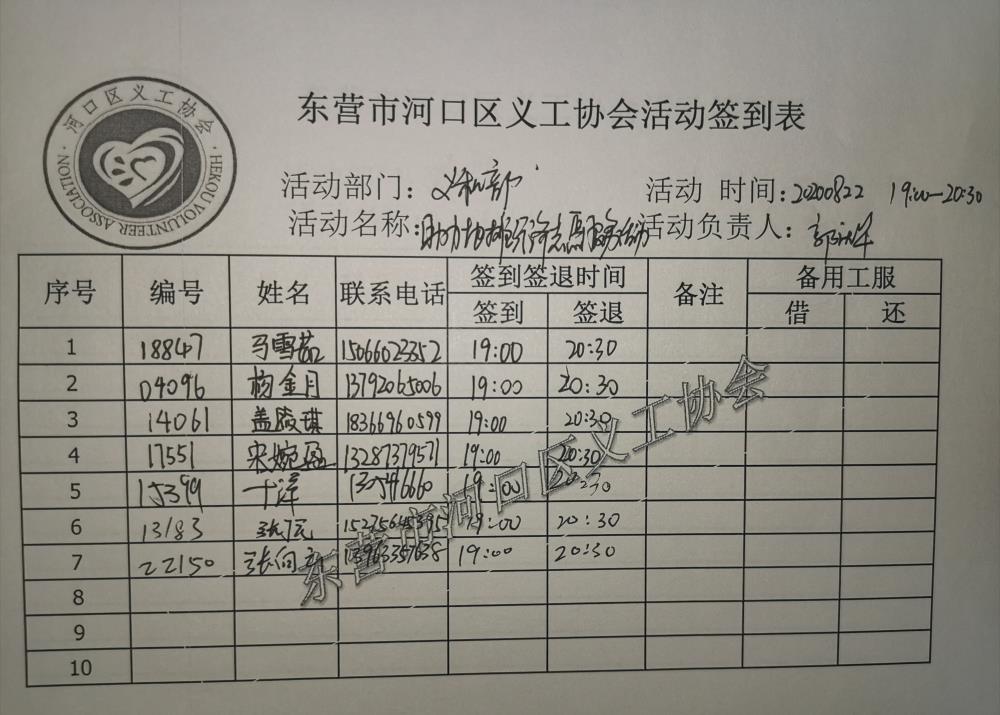 河口区义工协会
HEKOU VOLUNTEER ASSOCIATION
东营市河口区义工协会活动签到表
活动部门：
活动 时间：20200822 19:00-20:30
活动名称：
活动负责人：
序号 编号 姓名 联系电话 签到签退时间 备注 备用工服
签到 签退 借 还
1 18847 马雪茹 15066023352 19:00 20:30
2 04096 杨金月 13792065006 19:00 20:30
3 14061 盖 琪 18366960599 19:00 20:30
4 17551 宋婉 13287379571 19:00 20:30
5 15399 于洋 19:00 20:30
6 13183 19:00 20:30
7 22150 张向 19:00 20:30
8
9
10
东营市河口区义工协会